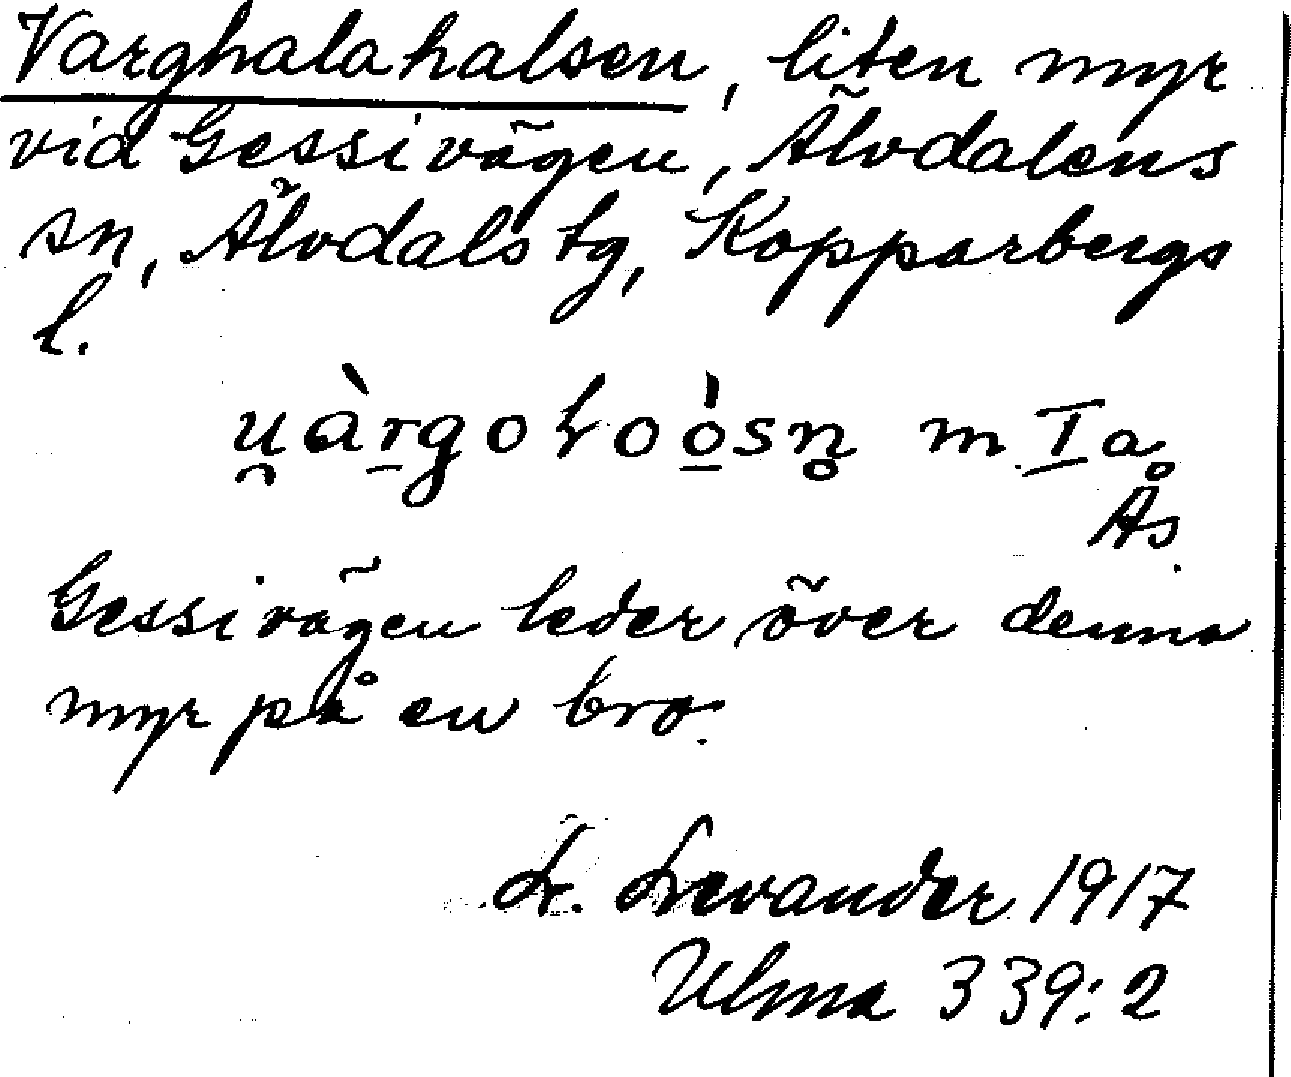 Varghalahalsen, liten myr
vid Gessivägen, Älvdalens
sn, Älvdals tg, Kopparbergs
l.
u̯àrgoɫoo̱̍sn̥ m I a
Ås.
Gessivägen leder över denna
myr på en bro.
L. Levander 1917
Ulma 339:2